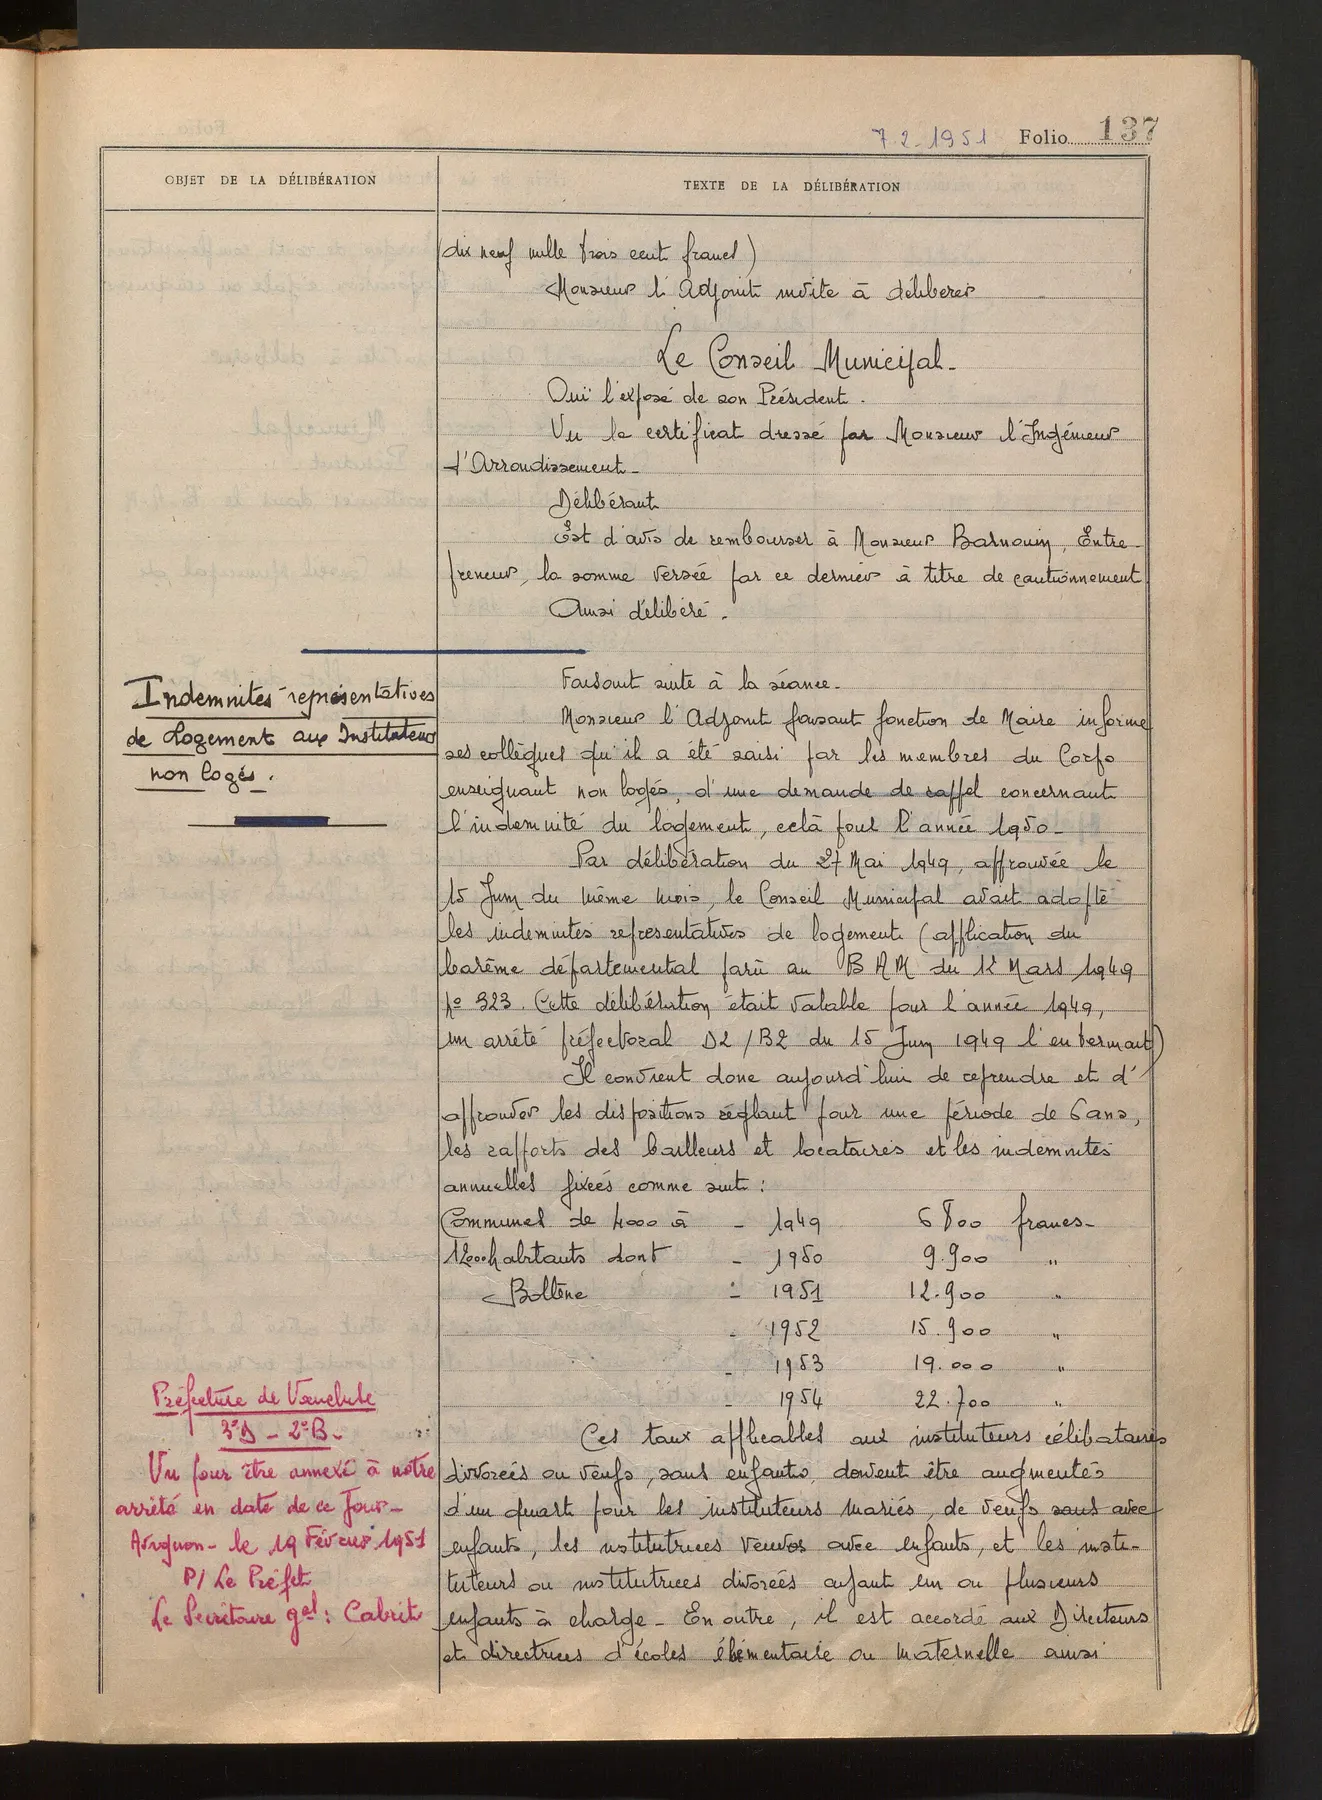 7.2.1951 Folio 137
OBJET DE LA DÉLIBÉRATION
TEXTE DE LA DÉLIBÉRATION
dix neuf mille trois cent francs)
Monsieur l'Adjoint invite à délibérer
Le Conseil Municipal.
Ouï l'exposé de son Président.
Vu le certificat dressé par Monsieur l'Ingénieur
d'Arrondissement.
Délibérant
Est d'avis de rembourser à Monsieur Barnouin, Entre-
preneur, la somme versée par ce dernier à titre de cautionnement
Ainsi délibéré.
Indemnités représentatives
de Logement aux Instituteurs
non logés.
Faisant suite à la séance.
Monsieur l'Adjoint faisant fonction de Maire informe
ses collègues qu'il a été saisi par les membres du Corps
enseignant non logés, d'une demande de rappel concernant
l'indemnité du logement, celà pour l'année 1950_
Par délibération du 27 Mai 1949, approuvée le
15 Juin du même mois, le Conseil Municipal avait adopté
les indemnités représentatives de logement (application du
barême départemental parû au BAM du 12 Mars 1949
No 323. Cette délibération était valable pour l'année 1949,
un arrêté préfectoral D2/B2 du 15 Juin 1949 l'entermant)
Il convient donc aujourd'hui de reprendre et d'
approuver les dispositions réglant pour une période de 6 ans,
les rapports des bailleurs et locataires et les indemnités
annuelles fixées comme suit :
Communes de 4000 à - 1949 6800 francs-
12000 habitants dont - 1950 9.900 "
Bollène - 1951 12.900 "
- 1952 15.900 "
- 1953 19.000 "
- 1954 22.700 "
Préfecture de Vaucluse
3e D - 2e B-
Vu pour être annexé à notre
arrêté en date de ce Jour-
Avignon- le 19 Février 1951
P/ Le Préfet
Le Secrétaire gal : Cabrit
Ces taux applicables aux instituteurs célibataires
divorcés ou veufs, sans enfants, doivent être augmentés
d'un quart pour les instituteurs mariés, de veufs sans avec
enfants, les institutrices veuves avec enfants, et les insti-
tuteurs ou institutrices divorcés ayant un ou plusieurs
enfants à charge - En outre, il est accordé aux Directeurs
et directrices d'écoles élémentaire ou maternelle ainsi